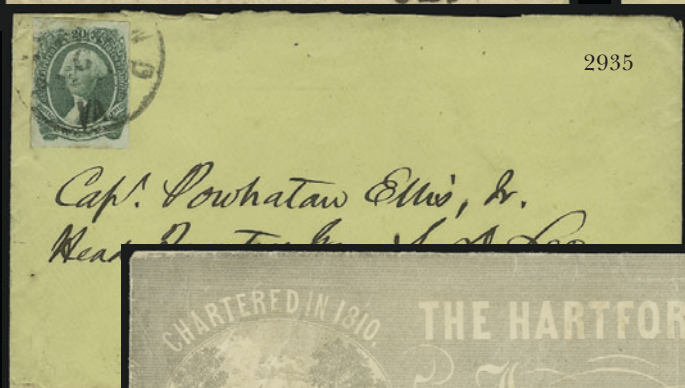 20
N D
VA
2935
Capt. Powhatan Ellis, Jr.
Head
CHARTERED IN 1810.
THE HARTFOR